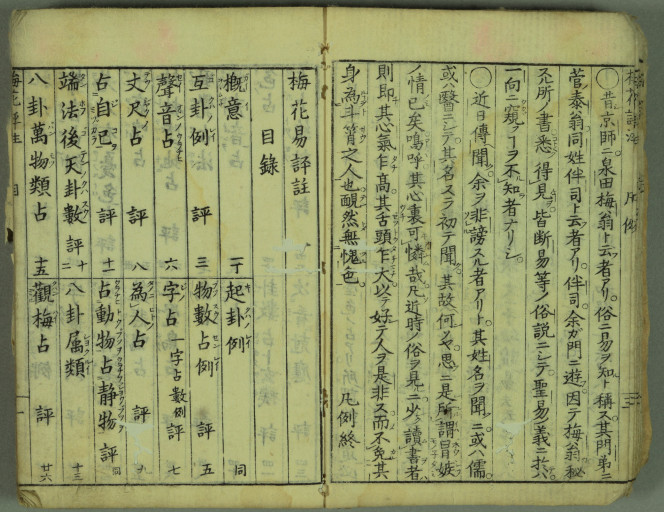 ◯昔京師ニ泉田梅翁ト云者アリ俗ニ易ヲ知ト稱ス其門弟ニ
菅泰翁同姓伴司ト云者アリ伴司余カ門ニ遊フ因テ梅翁秘
スル所ノ書ヲ悉ク得見ニ皆断易等ノ俗説ニシテ聖易ノ義ニ於ハ
一向ニ窺フヿヲ不知者ナリシ
◯近日傳聞ク余ヲ非謗スル者アリト其姓名ヲ聞ニ或ハ儒
或ハ醫ニシテ其名スラ初テ聞ク其故何ソヤ思ニ是所謂冒嫉
ノ情已矣嗚呼其心裏可憐哉凡近時ノ俗ヲ見ニ少ク讀書者ハ
則即其心氣乍高其舌頭乍大以テ好テ人ヲ是非ス而不免其
身為斗筲之人也靦然無愧色 凡例終
梅花易評註
目錄
概意 一丁 起卦例 同
互卦例 評 三 物數占例 評 五
聲音占 評 六 字占 一字占數例 評 七
丈尺占 評 八 為人占 評 九
占自己 評 十一 占動物占靜物 評 同
端法後天卦數 評 十二 八卦属類 十三
八卦萬物類占 十五 觀梅占 評 廿六